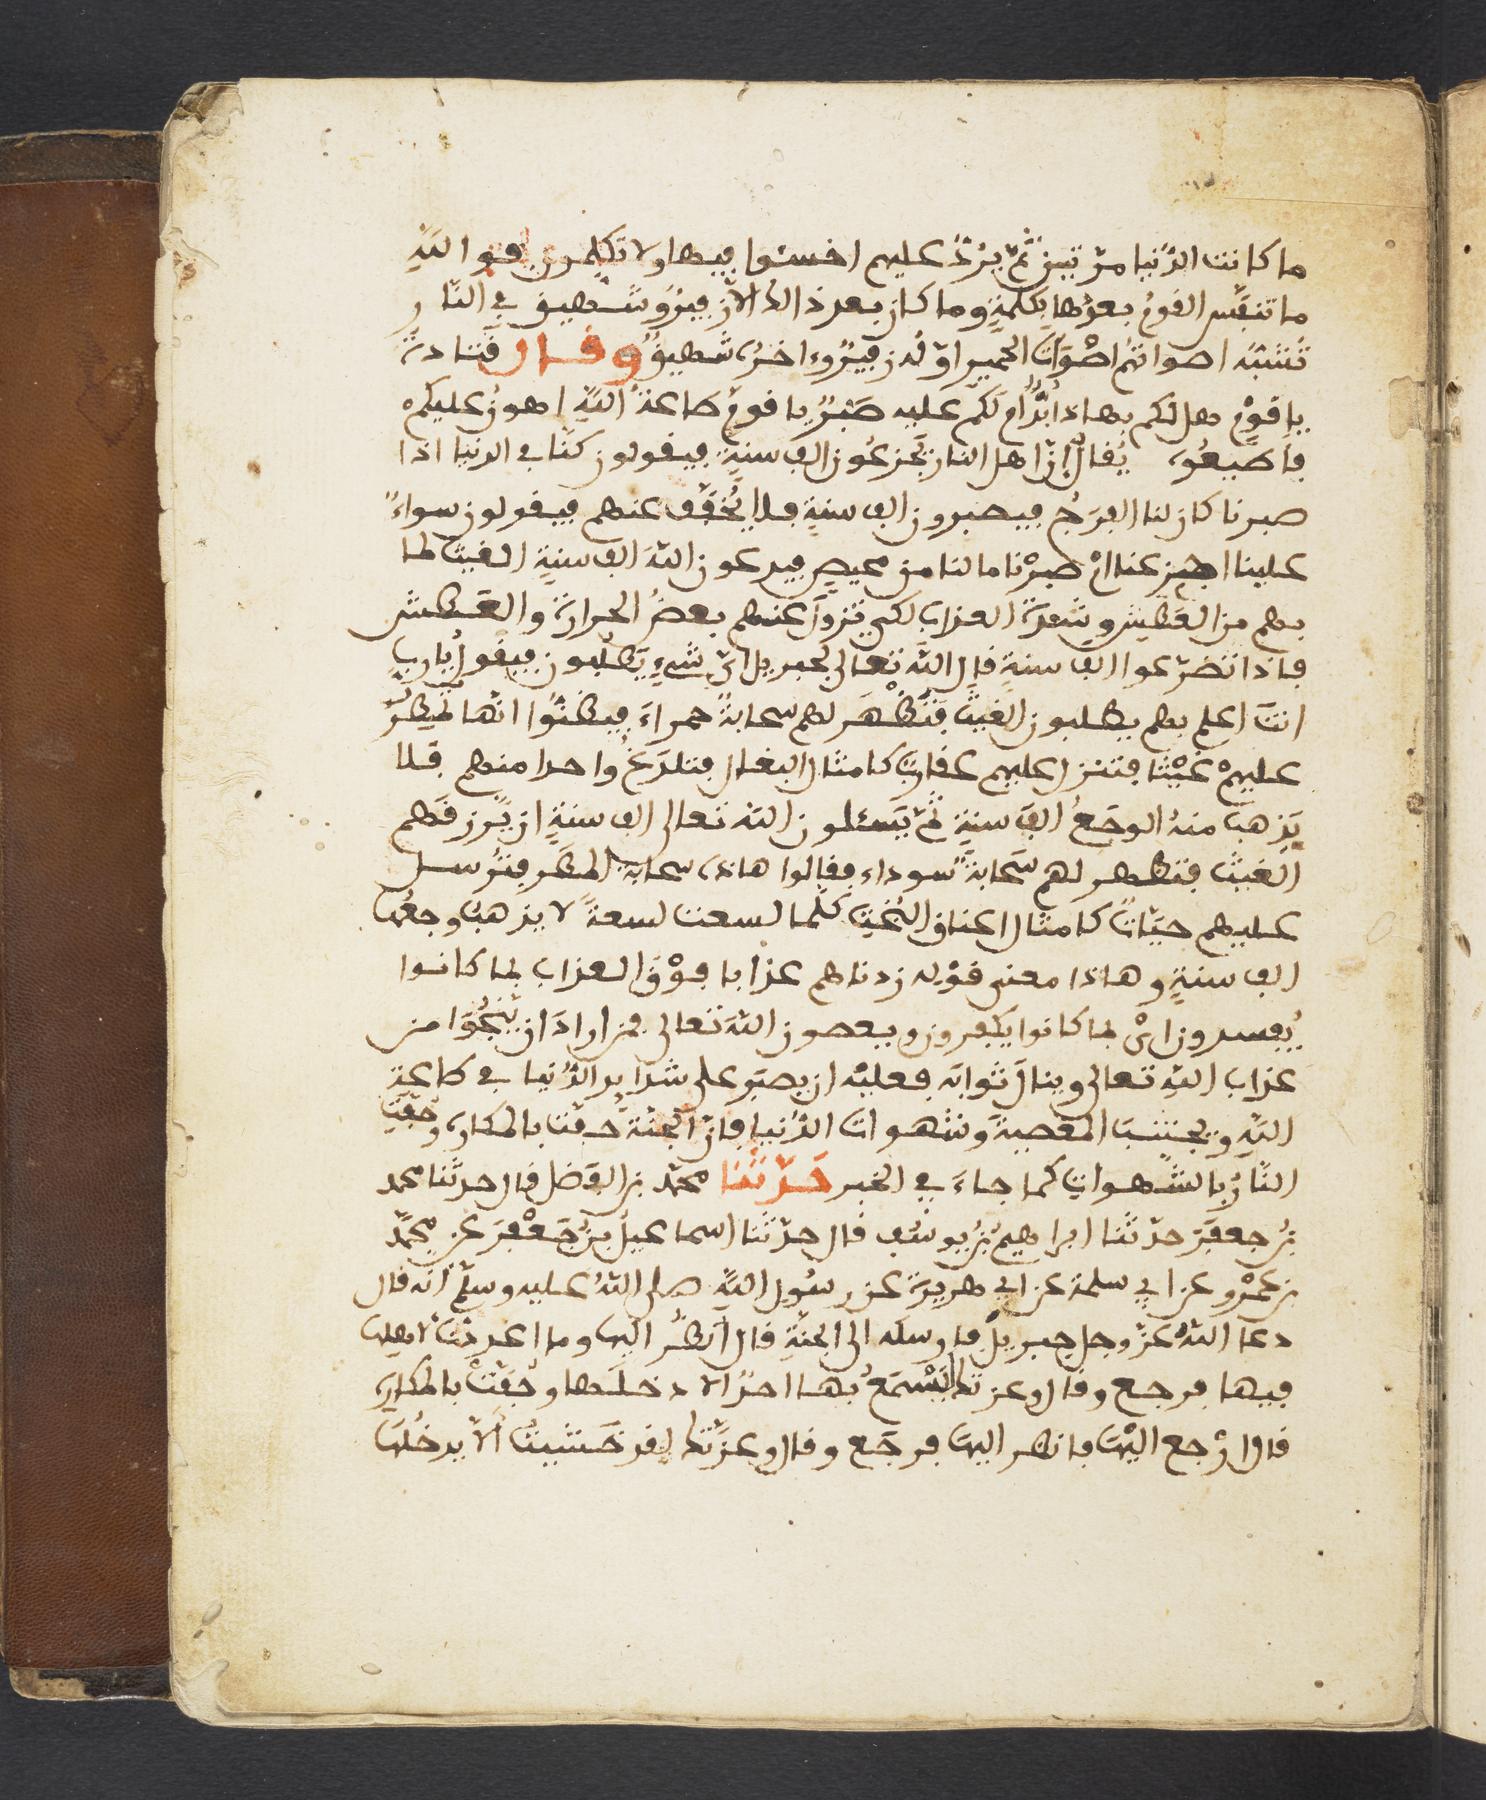 ما كانت الدنيا مرّتين ثمّ يردّ عليهم اخسئوا فيها ولا تكلمون فوالله
ما تنفّس القوم بعدها بكلمة وما كان بعد ذالك الاّ زفير وشهيق في النّار
تُشَبَّه اصواتهم اصوات الحمير اوّله زفير وءاخره شهيق وقال قتادة
يا قوم هل لكم بهاذا بُدّ ام لكم عليه صبر يا قوم طاعة الله اهون عليكم
فاطيعوه يقال انّ اهل النار يجزعون الف سنة فيقولون كنّا في الدنيا اذا
صبرنا كان لنا الفرج فيصبرون الف سنة فلا يخفّف عنهم فيقولون سواءٌ
علينا اجزعنا ام صبرنا ما لنا من محيص فيدعون اللهَ الف سنة الغيث لما
بهم من العطش وشدة العذاب لكي تزول عنهم بعض الحرارة والعطش
فاذا تضرّعوا الف سنة قال الله تعالى لجبريل ايّ شيء يطلبون فيقول يا ربّ
انتَ اعلم بهم يطلبون الغيث فتظهر لهم سحابة حمراء فيظنّوا انّها تمطر
عليهم غيثا فتنزل عليهم عقارب كامثال البغال فتلدغ واحدا منهم فلا
يذهب منه الوجع الف سنة ثمّ يسئلون الله تعالى الف سنة ان يرزقهم
الغيث فتظهر لهم سحابة سوداء فقالوا هاذه سحابة المطر فترسل
عليهم حيّات كامثال اعناق البُخْت كلّما لسعت لسعةً لا يذهب وجعها
الف سنة وهاذا معنى قوله زدناهم عذابا فوق العذاب بما كانوا
يفسدون اي بما كانوا يكفرون ويعصون الله تعالى فمن اراد ان ينجوا من
عذاب الله تعالى وينال ثوابه فعليه ان يصبر على شدايد الدّنيا في طاعة
الله ويجتنب المعصية وشهوات الدّنيا فانّ الجنّة حفّت بالمكاره وحفّت
النّار بالشّهوات كما جاء في الخبر حدّثنا محمّد بن الفضل قال حدثنا محمد
بن جعفر حدّثنا ابراهيم بن يوسف قال حدّثنا اسماعيل بن جعفر عن محمّد
بن عمرو عن ابي سلمة عن ابي هريرة عن رسول الله صلى الله عليه وسلم انه قال
دعا الله عزّ وجل جبريل فارسله الى الجنّة قال انظر اليها وما اعددت لاهلها
فيها فرجع وقال وعزتك لا يسمع بها احد الا دخلها وحُفّت بالمكاره
قال ارجع اليها فانظر اليها فرجع وقال وعزّتك لقد خشيت الاّ يدخلها